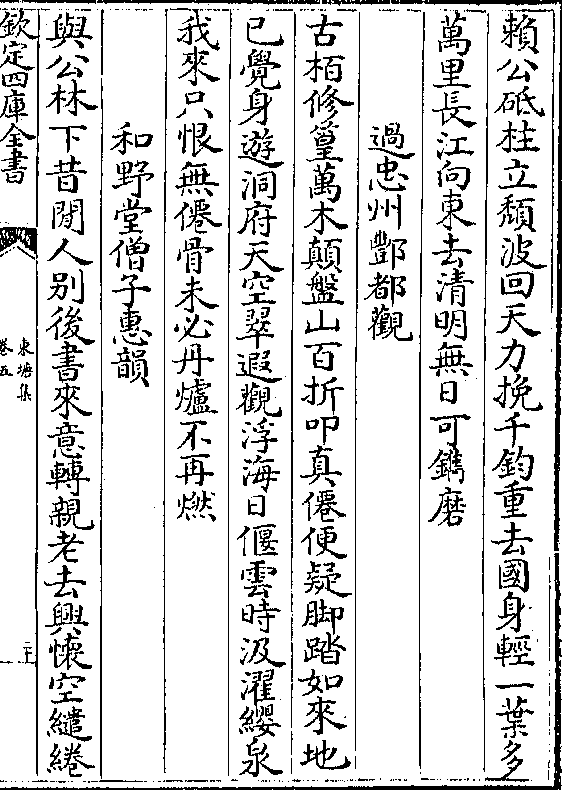 賴公砥柱立頽波回天力挽千鈞重去國身輕一葉多
萬里長江向東去清明無日可鐫磨
過忠州酆都觀
古栢修篁萬木顛盤山百折叩真僊便疑脚踏如來地
已覺身遊洞府天空翠遐觀浮海日偃雲時汲濯纓泉
我來只恨無僊骨未必丹爐不再燃
和野堂僧子惠韻
與公林下昔閒人别後書來意轉親老去興懷空繾綣
欽定四庫全書
東塘集
卷五
二十一